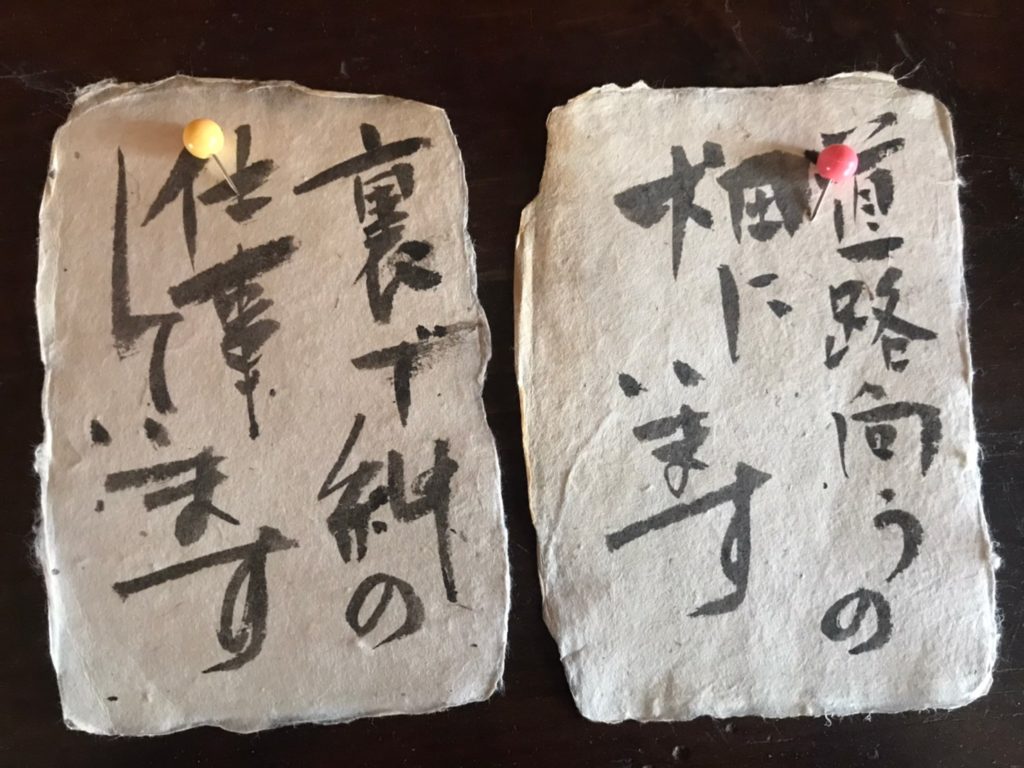 道路向うの
畑にいます
裏で の
仕事
しています